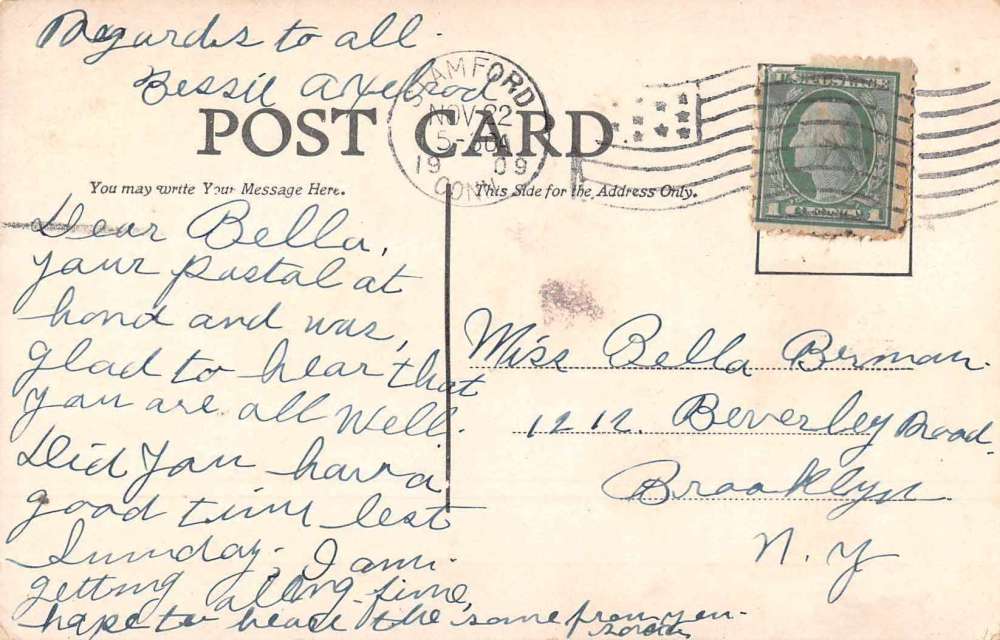 Regards to all.
Bessie Axelrod
POST CARD
STAMFORD
NOV 22
5-30A
1909
CONN.
You may write Your Message Here.
This Side for the Address Only.
1 1
Dear Bella,
your postal at
hand and was,
glad to hear that
you are all well.
Did you have a
good time lest
Sunday. I am
getting along fine,
hope to hear the same from you
soon
Miss Bella Berman.
1212. Beverley Road
Brooklyn
N.Y